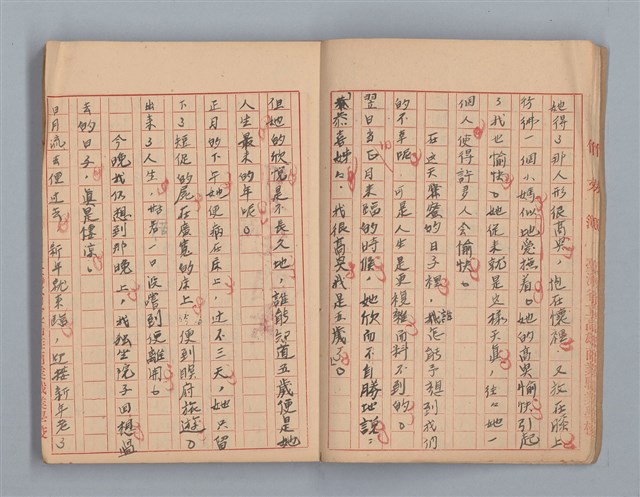 她得了那人形很高興，抱在懷裡，又放在臉上
彷彿一個小媽似地愛撫着。她的高興愉快引起
了我也愉快。她從來就是這樣天真，往々她一
個人使得許多人會愉快。
在這天麗鶯的日子裡，我說窮乎想到我們
的不年呢，可是人生是更複雜而料不到的。
翌日當正月來臨的時候，她欣而不自勝地說：
「恭喜姊々，我很高興我是五歲了」。
但她的欣悅是不長久地，誰能知道五歲便是她
人生最末的年呢。
正月的下午她便病在床上，过不三天，她只留
下了短促的屍在廣寬的床上，便到冥府旅遊。
出來了人生，好看一口沒嚐到便離開。
今晚我仍想到那晚上，我独坐院子回想過
去的日子，真是悽涼。
日月流去但过去，新年就來臨，迎接新年老了